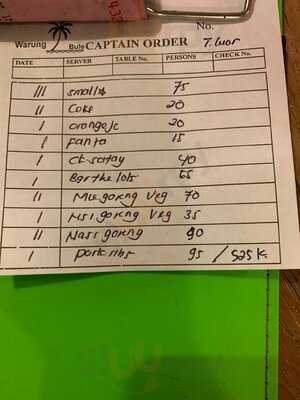 No.
Warung Bule CAPTAIN ORDER T. luar
DATE SERVER TABLE No. PERSONS CHECK No.
||| small 75
|| Coke 20
| orange jc 20
| Fanta 15
| ck satay 40
| Bgr the lots 65
|| Mie goreng veg 70
| Nsi goreng veg 35
|| Nasi goreng 90
| pork ribs 95 / 525 K